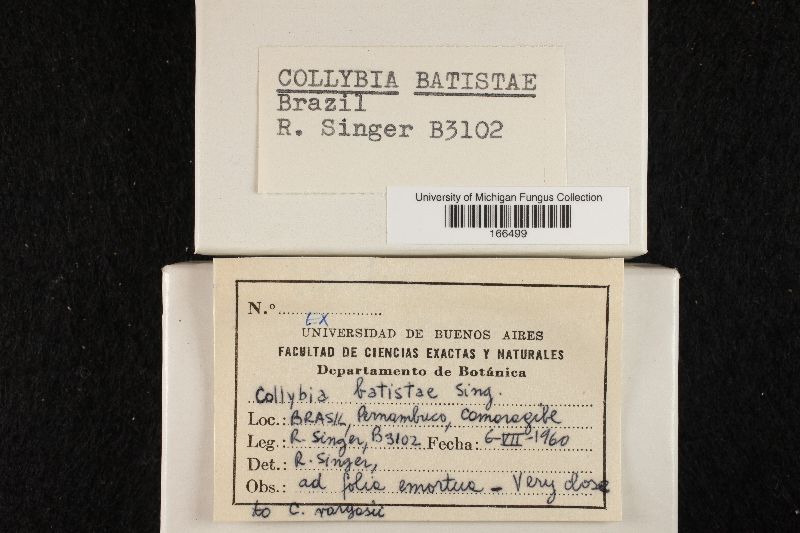 COLLYBIA BATISTAE
Brazil
R. Singer B3102
University of Michigan Fungus Collection
166499
N.º
EX
UNIVERSIDAD DE BUENOS AIRES
FACULTAD DE CIENCIAS EXACTAS Y NATURALES
Departamento de Botánica
Collybia batistae Sing.
Loc.: BRASIL, Pernambuco, Comoragibe
Leg.: R. Singer, B3102 Fecha: 6-VII-1960
Det.: R. Singer,
Obs.: ad folia emortua - Very close
to C. vargasii